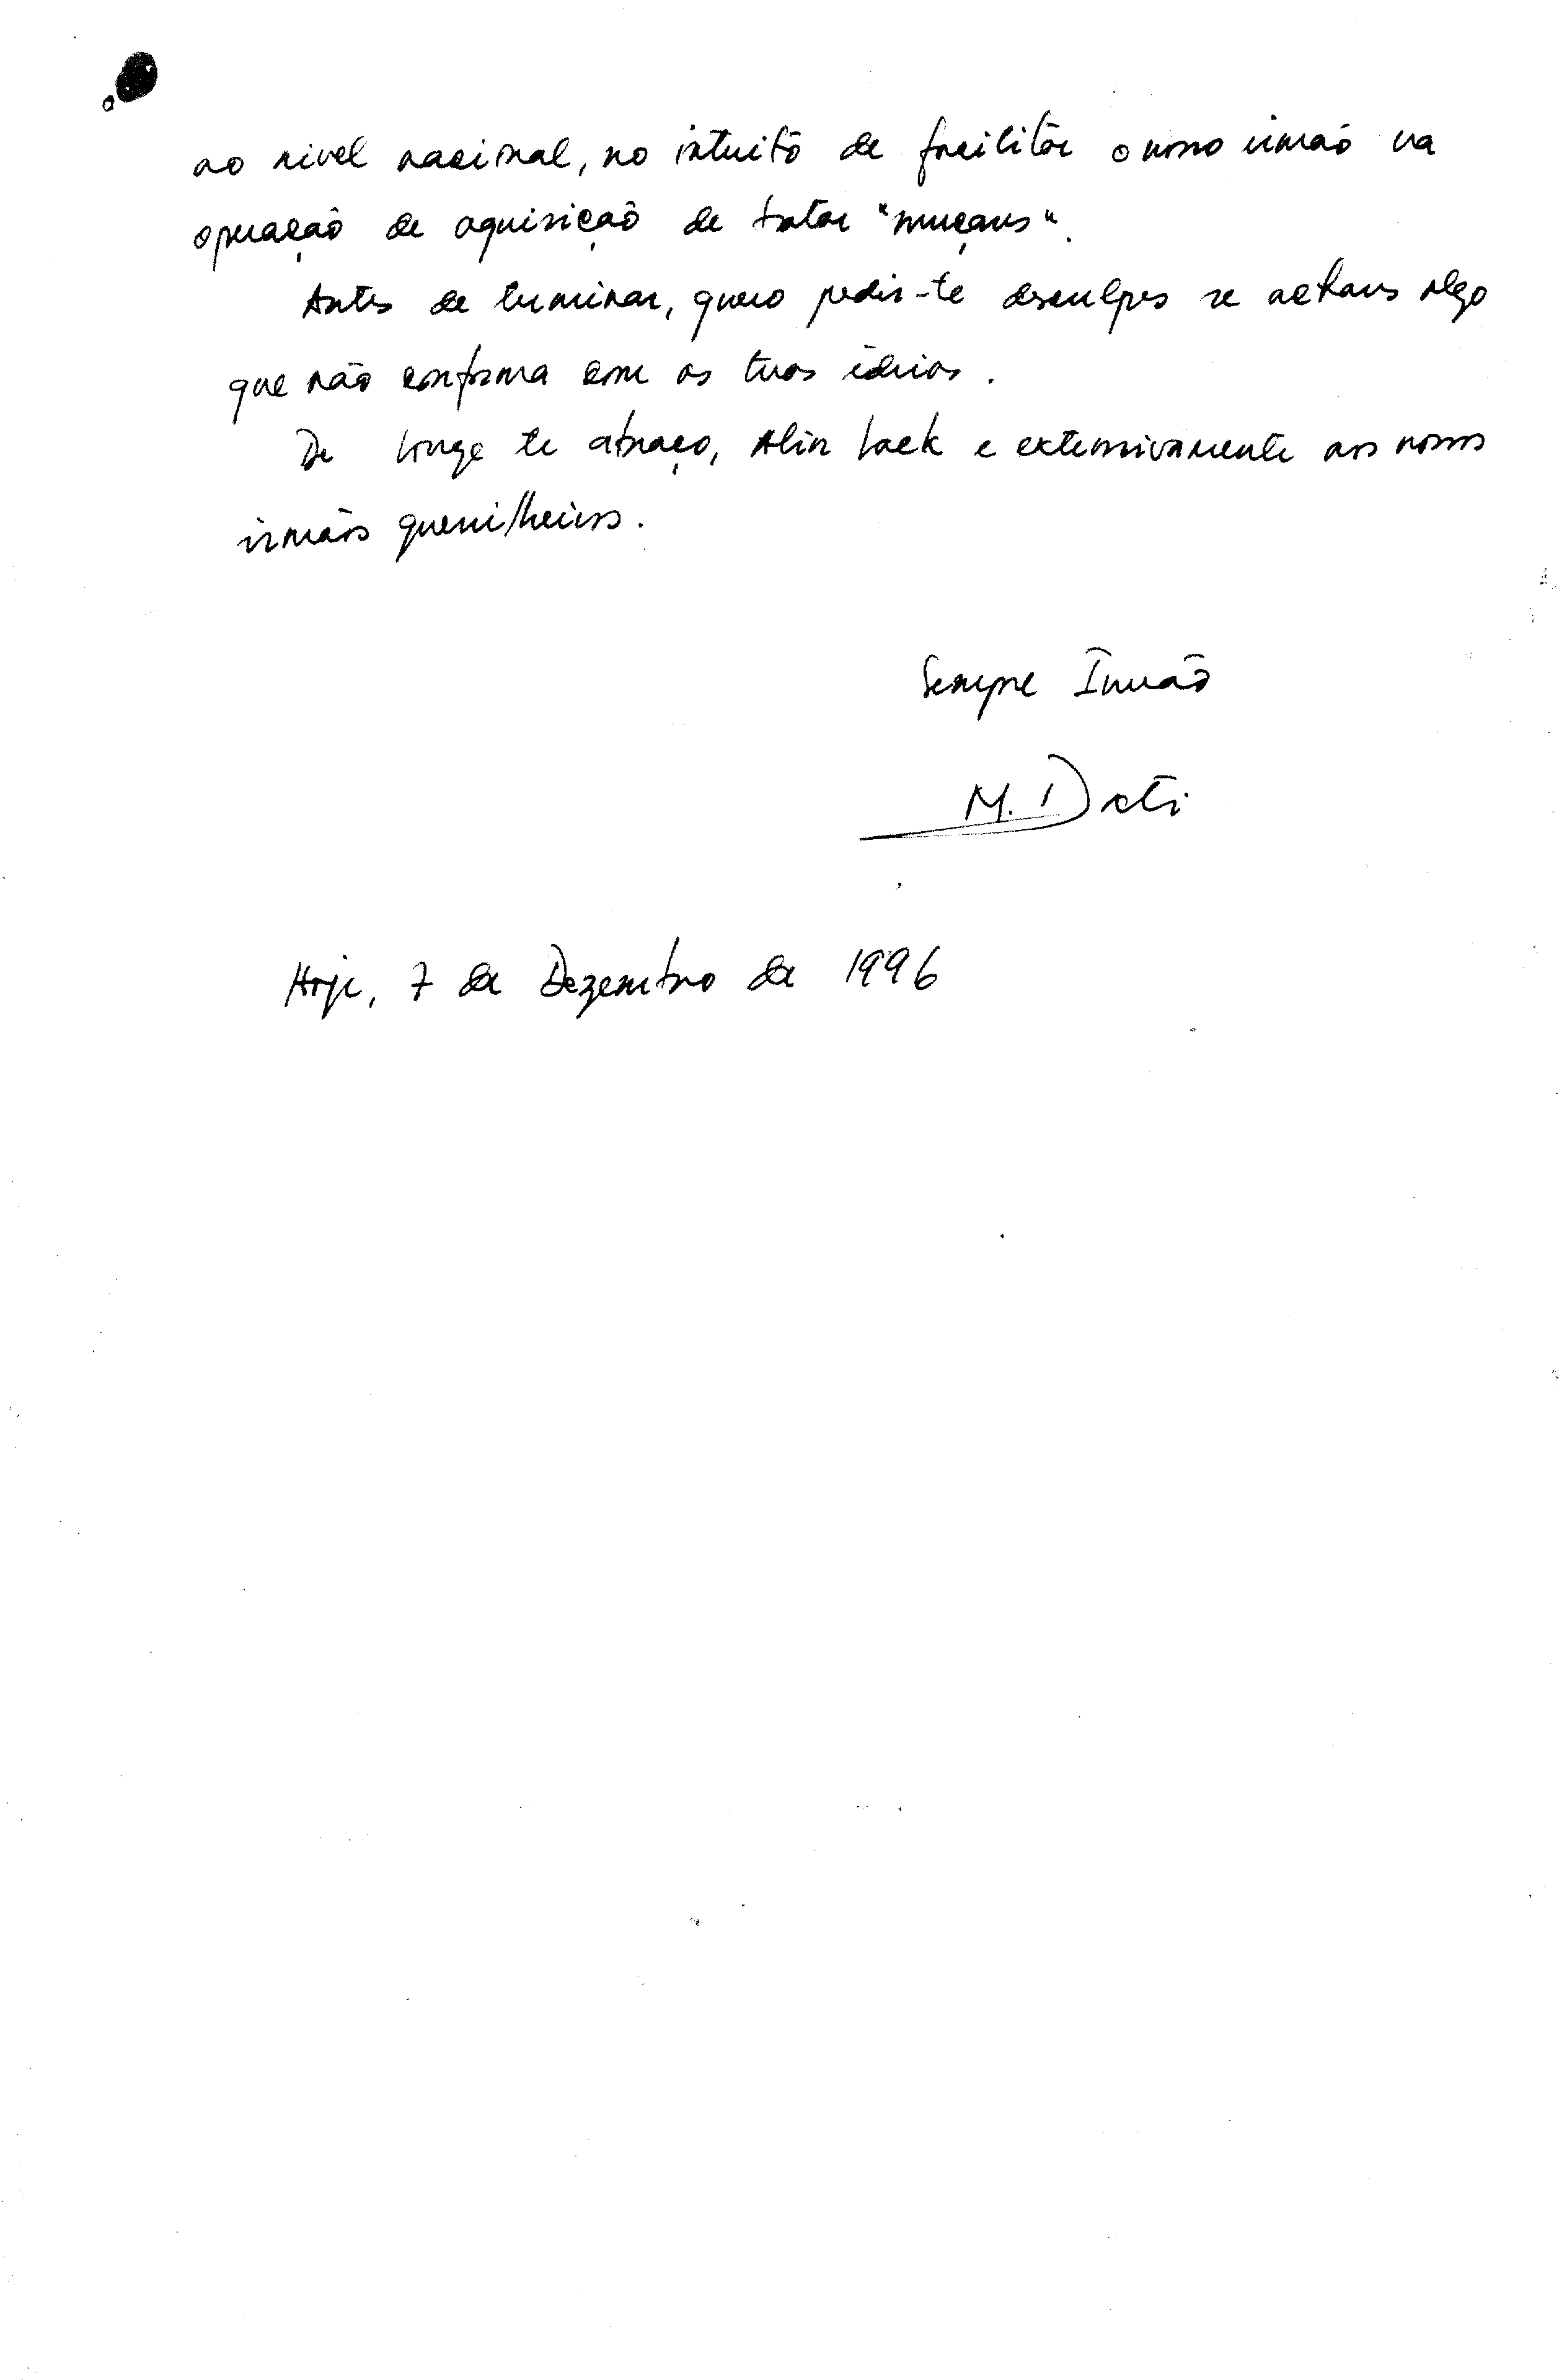 ao nivel nacional, no intuitō de facilitār o nosso irmaō na
operaçaō de aquisiçaō de tratar "muçaus".
Antes de terminar, quero pedir-te desculpas se achares algo
que não conforma com as tuas ideias.
De longe te abraço, Alin Laek e extensivamente aos nossos
irmãos guerrilheiros.
Sempre Irmão
M. Dati
Hoje, 7 de Dezembro de 1996